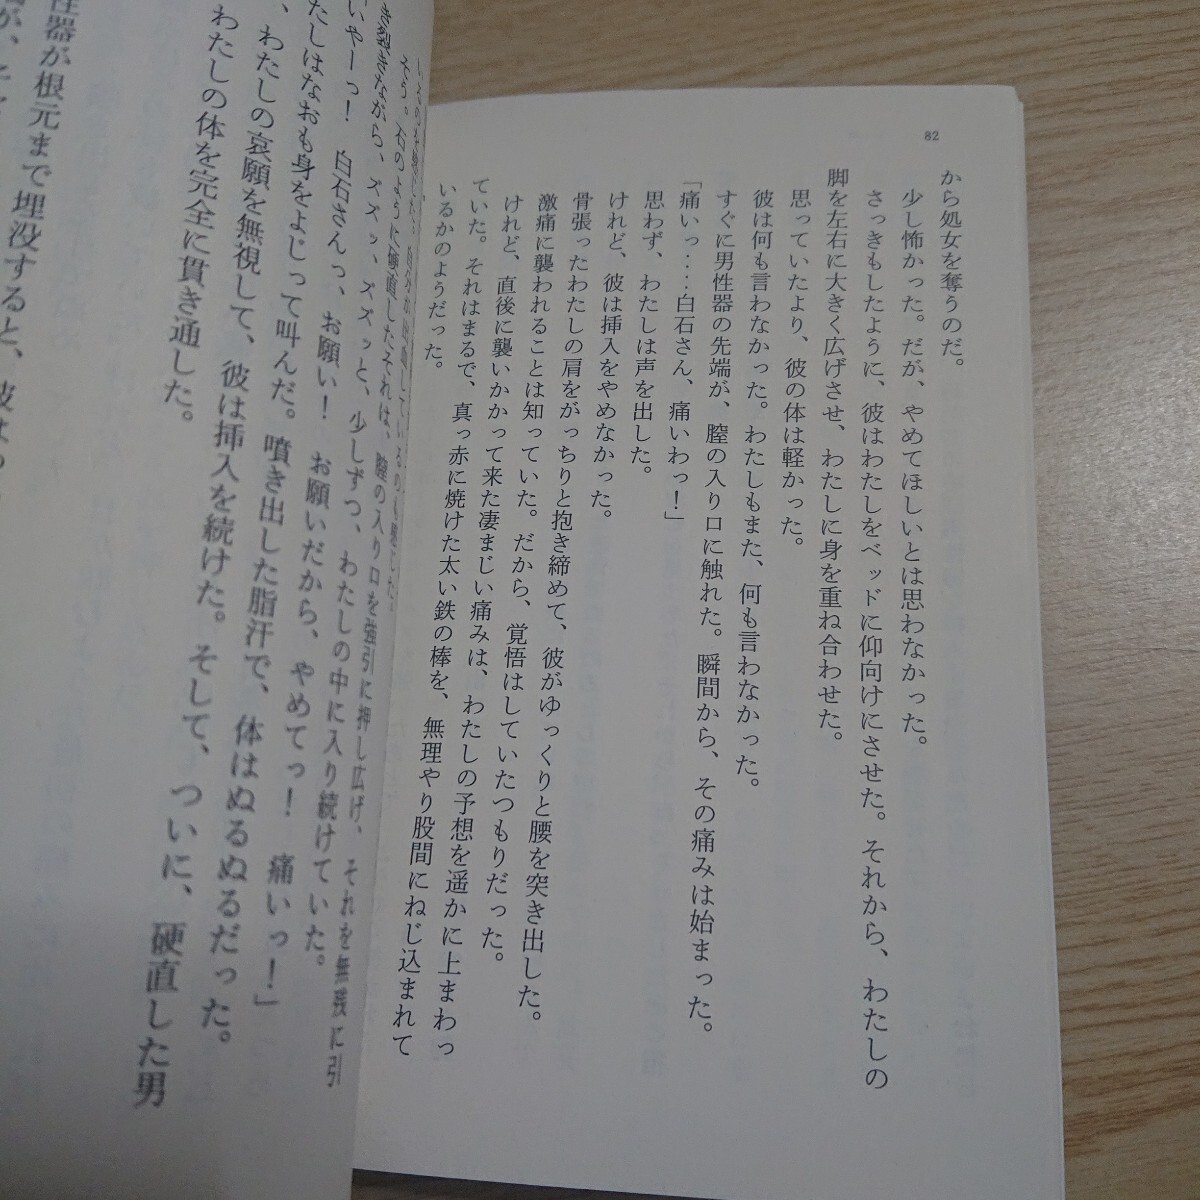 82
から処女を奪うのだ。
少し怖かった。だが、やめてほしいとは思わなかった。
さっきもしたように、彼はわたしをベッドに仰向けにさせた。それから、わたしの
脚を左右に大きく広げさせ、わたしに身を重ね合わせた。
思っていたより、彼の体は軽かった。
彼は何も言わなかった。わたしもまた、何も言わなかった。
すぐに男性器の先端が、膣の入り口に触れた。瞬間から、その痛みは始まった。
「痛いっ‥‥白石さん、痛いわっ！」
思わず、わたしは声を出した。
けれど、彼は挿入をやめなかった。
骨張ったわたしの肩をがっちりと抱き締めて、彼がゆっくりと腰を突き出した。
激痛に襲われることは知っていた。だから、覚悟はしていたつもりだった。
けれど、直後に襲いかかって来た凄まじい痛みは、わたしの予想を遥かに上まわっ
ていた。それはまるで、真っ赤に焼けた太い鉄の棒を、無理やり股間にねじ込まれて
いるかのようだった。
そう。石のように硬直したそれは、膣の入り口を強引に押し広げ、それを無残に引
き裂きながら、ズズッ、ズズッと、少しずつ、わたしの中に入り続けていた。
いやーっ！　白石さんっ、お願い！　お願いだから、やめてっ！　痛いっ！」
たしはなおも身をよじって叫んだ。噴き出した脂汗で、体はぬるぬるだった。
、わたしの哀願を無視して、彼は挿入を続けた。そして、ついに、硬直した男
わたしの体を完全に貫き通した。
性器が根元まで埋没すると、彼は